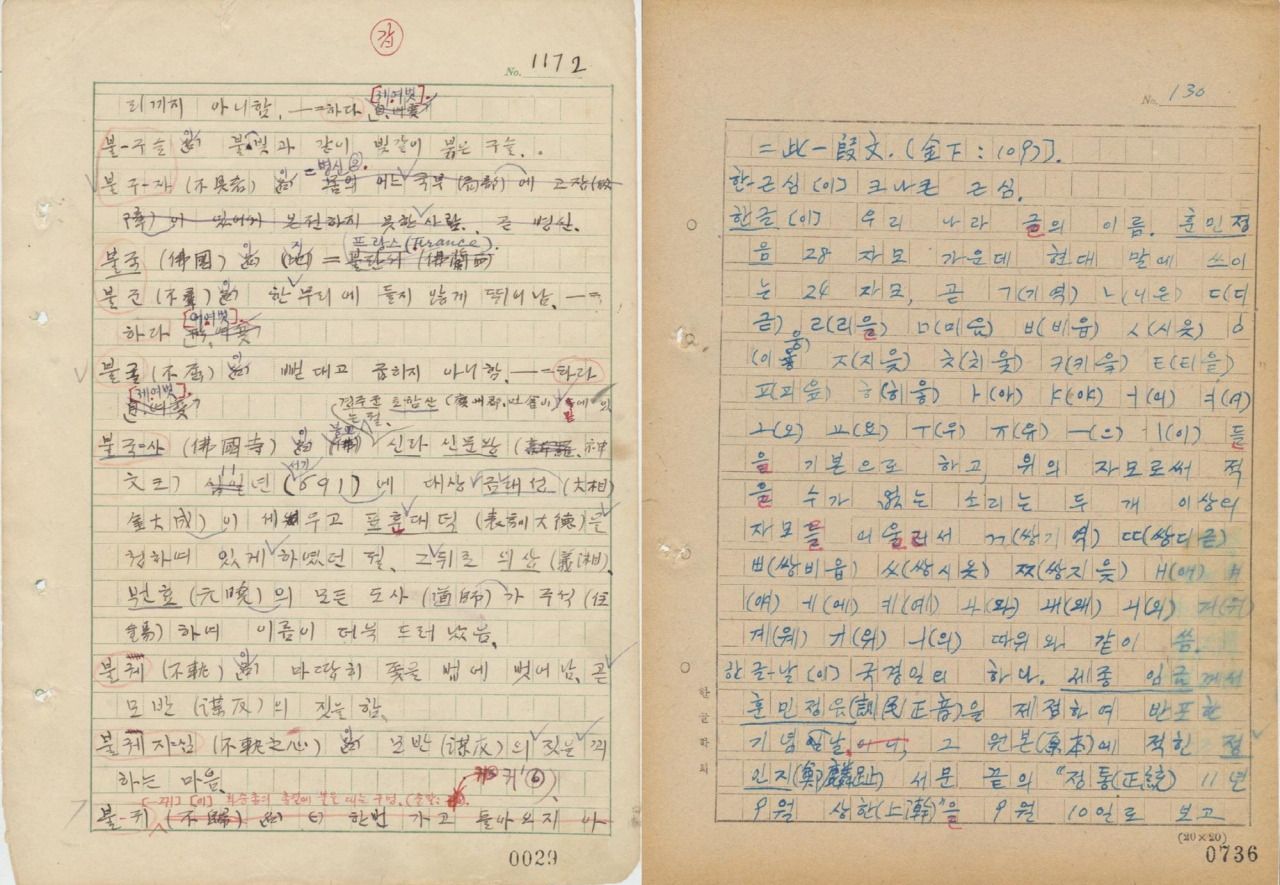 갑
No. 1172
리까지 아니함. —하다
불-구슬 불빛과 같이 빛같이 붉은 구슬.
=병신②.
불구-자 (不具者) 몸의 어느 국부 (局部)에 고장(故
障)이 있어서 온전하지 못한 사람. 곧 병신.
프랑스(France).
불국 (佛國) = 불란서 (佛蘭西)
불군 (不羣) 한 무리에 들지 않게 뛰어남. —
하다
불굴 (不屈) 뻗대고 굽히지 아니함. —하다
경주군 토함산
는 절.
불국-사 (佛國寺) 신라 신문왕 神
文王 십일년 (691)에 대상 김대성 (大相
金大成)이 세우고 표훈대덕 (表訓大德)를
청하며 있게 하였던 절. 그뒤로 의상 (義湘),
원효 (元曉)의 모든 도사 (道師)가 주석 (住
錫)하며 이름이 더욱 드러났음.
불궤 (不軌) 마땅히 좇을 법에 벗어남. 곧
모반 (謀反)의 짓을 함.
불궤지심 (不軌之心) 모반 (謀反)의 짓을 꾀
하는 마음.
불-귀 (不歸) 한번 가고 돌아오지 아
0029
No. 130
=此一段文. (金下: 109).
한-근심 (이) 크나큰 근심.
한글 (이) 우리 나라 글의 이름. 훈민정
음 28 자모 가운데 현대 말에 쓰이
는 24 자모, 곧 ㄱ(기역) ㄴ(니은) ㄷ(디
귿) ㄹ(리을) ㅁ(미음) ㅂ(비읍) ㅅ(시옷) ㅇ
(이응) ㅈ(지읒) ㅊ(치읓) ㅋ(키읔) ㅌ(티읕)
ㅍ(피읖) ㅎ(히읗) ㅏ(아) ㅑ(야) ㅓ(어) ㅕ(여)
ㅗ(오) ㅛ(요) ㅜ(우) ㅠ(유) ㅡ(으) ㅣ(이) 들
을 기본으로 하고, 위의 자모로써 적
을 수가 없는 소리는 두 개 이상의
자모를 어울러서 ㄲ(쌍기역) ㄸ(쌍디귿)
ㅃ(쌍비읍) ㅆ(쌍시옷) ㅉ(쌍지읒) ㅐ(애) ㅒ
(얘) ㅔ(에) ㅖ(예) ㅘ(와) ㅙ(왜) ㅚ(외) ㅝ(워)
ㅞ(웨) ㅟ(위) ㅢ(의) 따위와 같이 씀.
한글-날 (이) 국경일의 하나. 세종 임금께서
훈민정음(訓民正音)을 제정하여 반포한
기념 날 그 원본(原本)에 적힌 정
인지(鄭麟趾) 서문 끝의 "정통(正統) 11년
9월 상한(上澣)"을 9월 10일로 보고
한글학회
(20×20)
0736